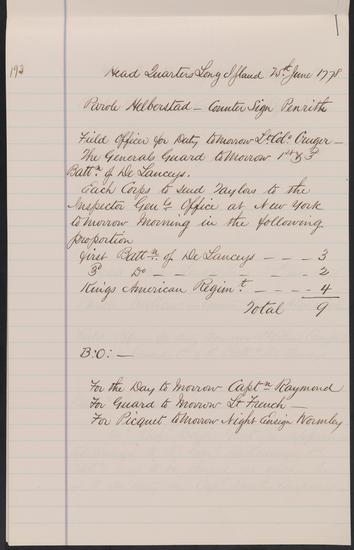 193
Head Quarters Long Island 25th June 1778
Parole Helborstad - Counter Sign Penrith
Field Officer for Duty tomorrow Lt Col. Cruger -
The Generals Guard tomorrow 1st & 3d
Battn of De Lanceys.
Each Corps to send Taylors to the
Inspector Genls Office at New York
tomorrow Morning in the following
proportion
First Battn of De Lanceys - - - 3
3d Do - - - - - - 2
Kings American Regimt. - - - - 4
Total 9
B:O: -
For the Day to Morrow Captn Raymond
For Guard to Morrow Lt French -
For Picquet tomorrow Night Ensign Wormley